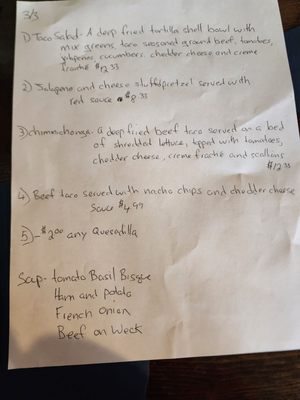 3/3
1) Taco Salad - A deep fried tortilla shell bowl with
mix greens, taco seasoned ground beef, tomatoes,
jalapenos, cucumbers, chedder cheese and creme
fraché $12.33
2) Jalapeno and cheese stuffed pretzel served with
red sauce $8.33
3) chimmichanga. a deep fried beef taco served on a bed
of shredded lettuce, topped with tomatoes,
chedder cheese, creme fraché and scallions
$12.33
4) Beef taco served with nacho chips and chedder cheese
Sauce $4.99
5) - $2.00 any Quesadilla
Soup - tomato Basil Bisque
Ham and potato
French Onion
Beef on Weck